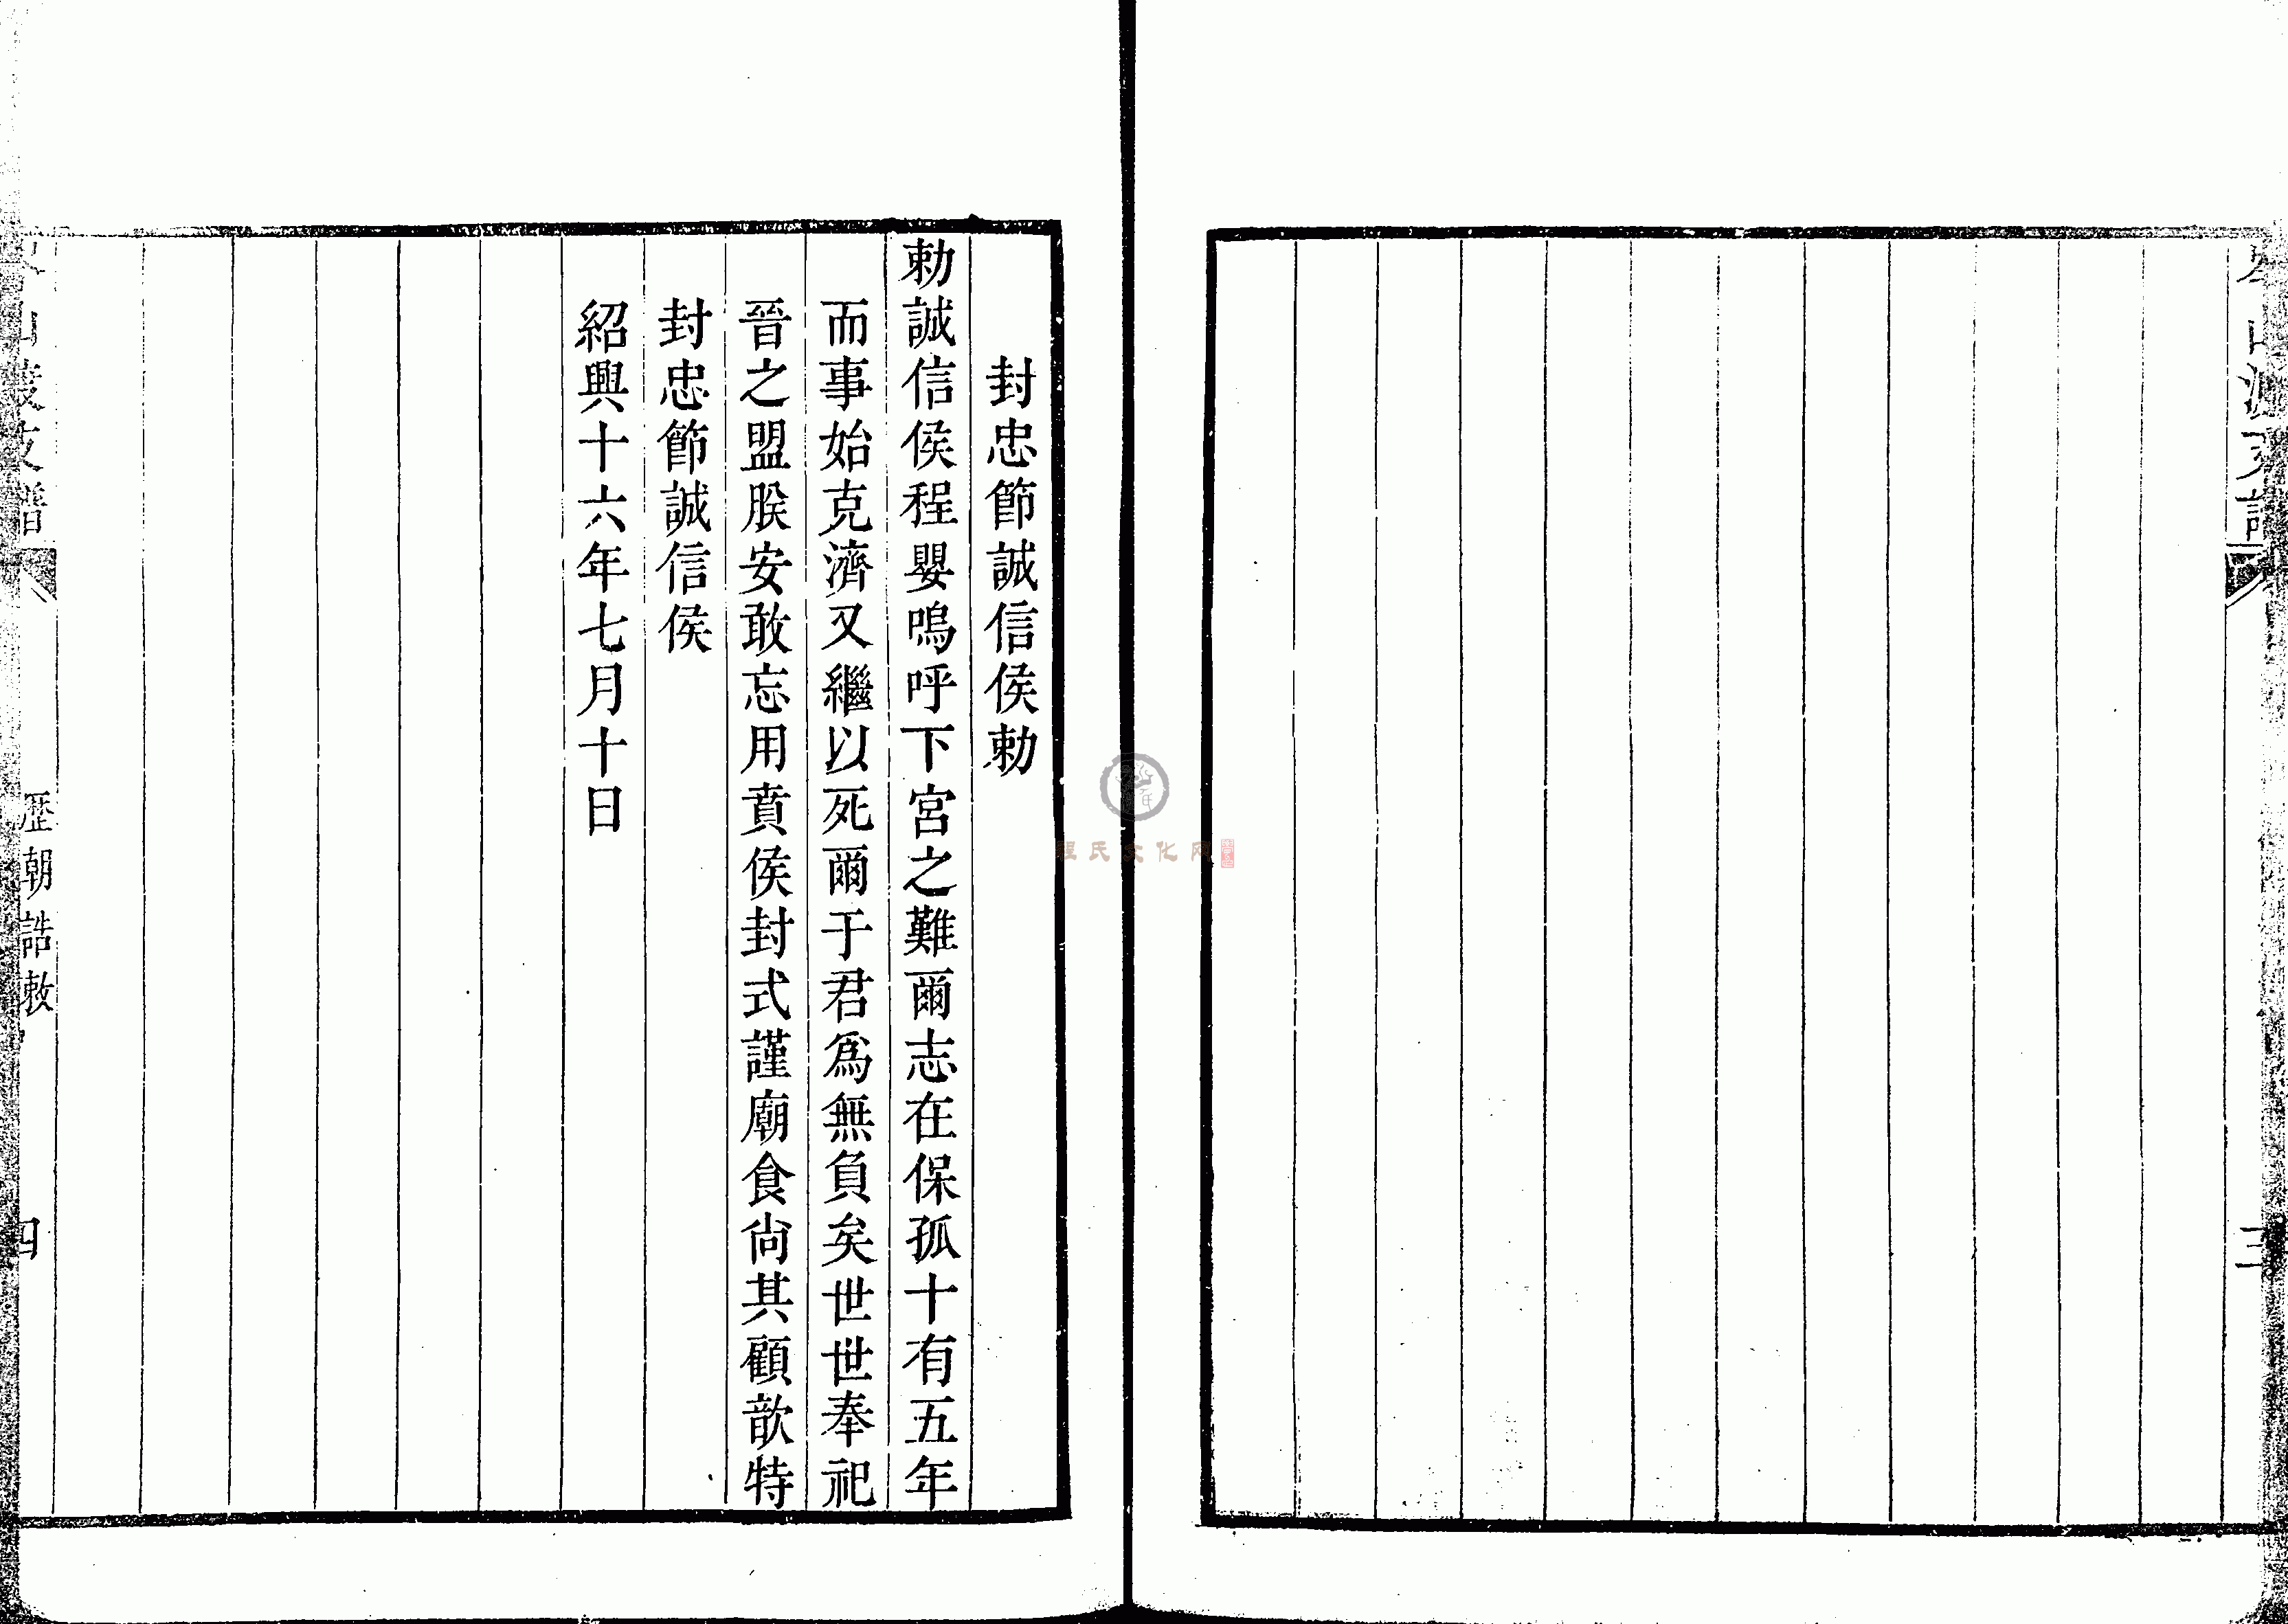 三
封忠節誠信侯勅
勅誠信侯程嬰嗚呼下宮之難爾志在保孤十有五年
而事始克濟又繼以死爾于君爲無負矣世世奉祀
晉之盟朕安敢忘用賁侯封式謹廟食尙其顧歆特
封忠節誠信侯
紹興十六年七月十日
歷朝誥敕
四
程氏文化网